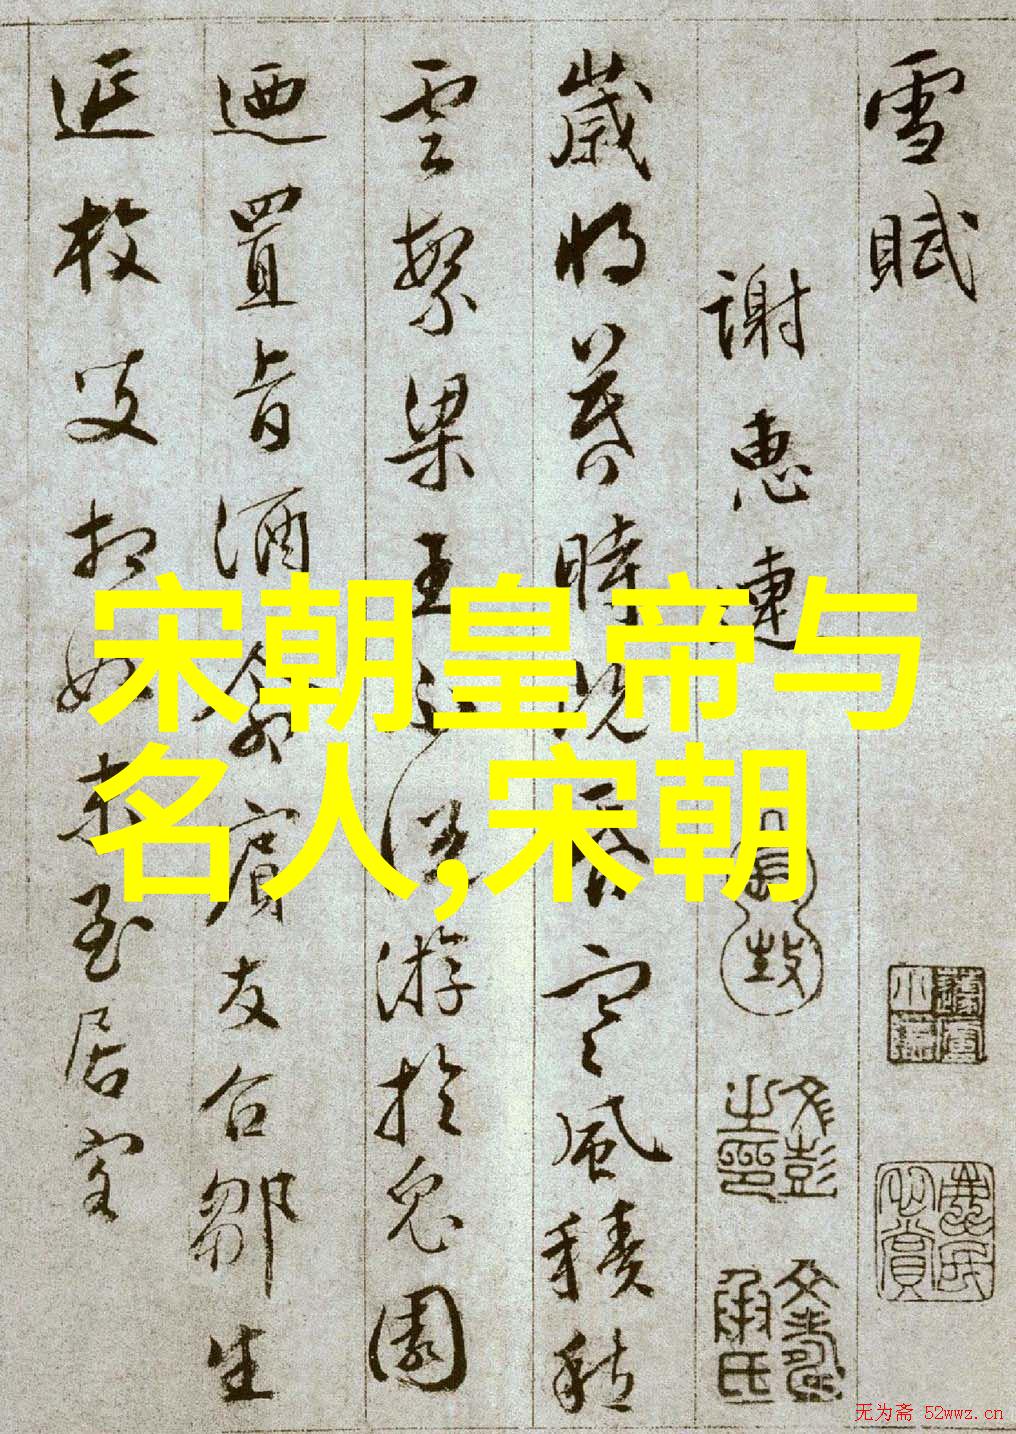 雪賦
謝惠連
歲將暮時既昏寒風積愁
雲繁梁王不悅游於兔園
迺置旨酒命賓友召鄒生
延枚叟相如末至居客
宋朝皇帝与
名人,宋朝
文彭之印
文壽承氏
无为斋 52wwz.cn